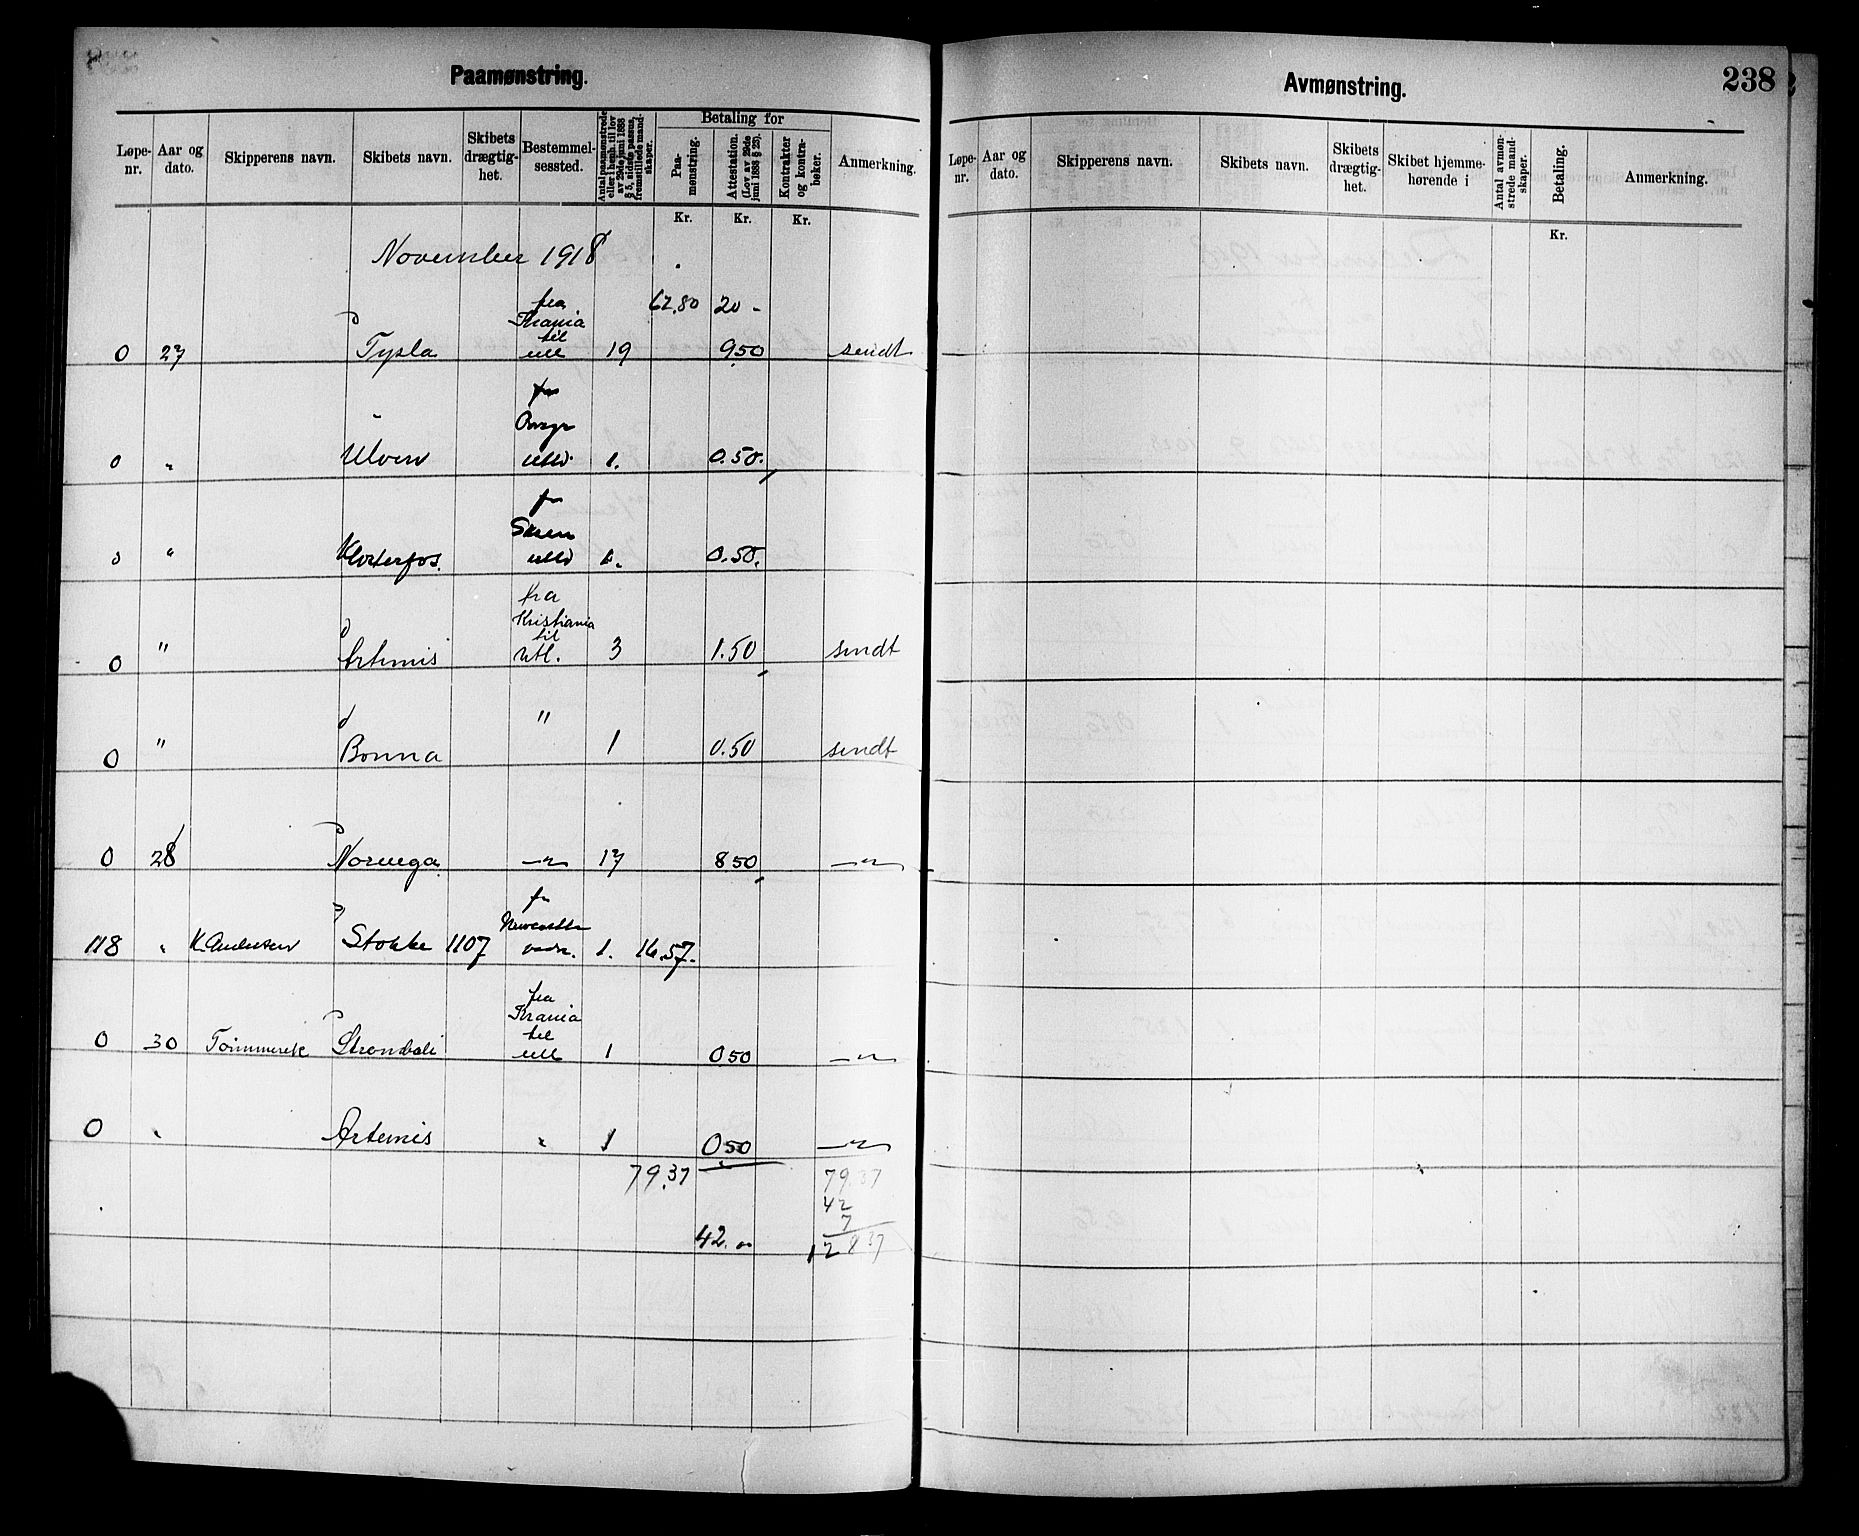 Paamønstring.
Løpe-nr. Aar og dato. Skipperens navn. Skibets navn. Skibets drægtig-het. Bestemmel-sessted. Antal paamønstrede eller i henh. til lov av 29de juni 1888 § 5, sidste passus, fremstillede mand-skaper. Betaling for Paa-mønstring. Attestation. (Lov av 29de juni 1888 § 25). Kontrakter og kontra-bøker. Anmerkning.
Kr. Kr. Kr.
November 1918
62.80 20 -
0 27 Tysla fra Krania til utl 19 9.50 sendt
0 " Ulven fr utld. 1. 0.50.
0 " Klosterfos. fr Skien utld 1. 0.50.
0 " Artemis fra Kristiania til utl. 3 1.50 sendt
0 " Bonna " 1 0.50 sendt
0 28 Norvega — " — 17 8.50 — " —
118 " K. Andersen Stokke 1107 fr 1. 16.57.
0 30 fra Krania til utl 1 0.50 — " —
0 " Artemis " 1 0.50 — " —
79.37 79.37
42
7
42. " 128 37
Avmønstring.
238
Løpe-nr. Aar og dato. Skipperens navn. Skibets navn. Skibets drægtig-het. Skibet hjemme-hørende i Antal avmøn-strede mand-skaper. Betaling. Anmerkning.
Kr.